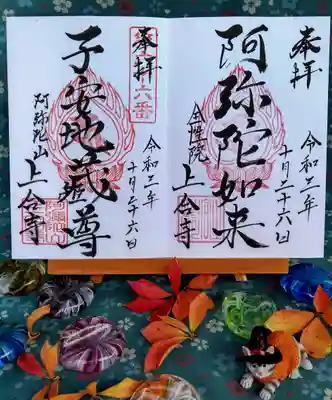 奉拝
阿弥陀如来
令和二年
十月二十六日
上合寺
奉拝
六番
子安地蔵尊
令和二年
十月二十六日
阿弥陀山
上合寺